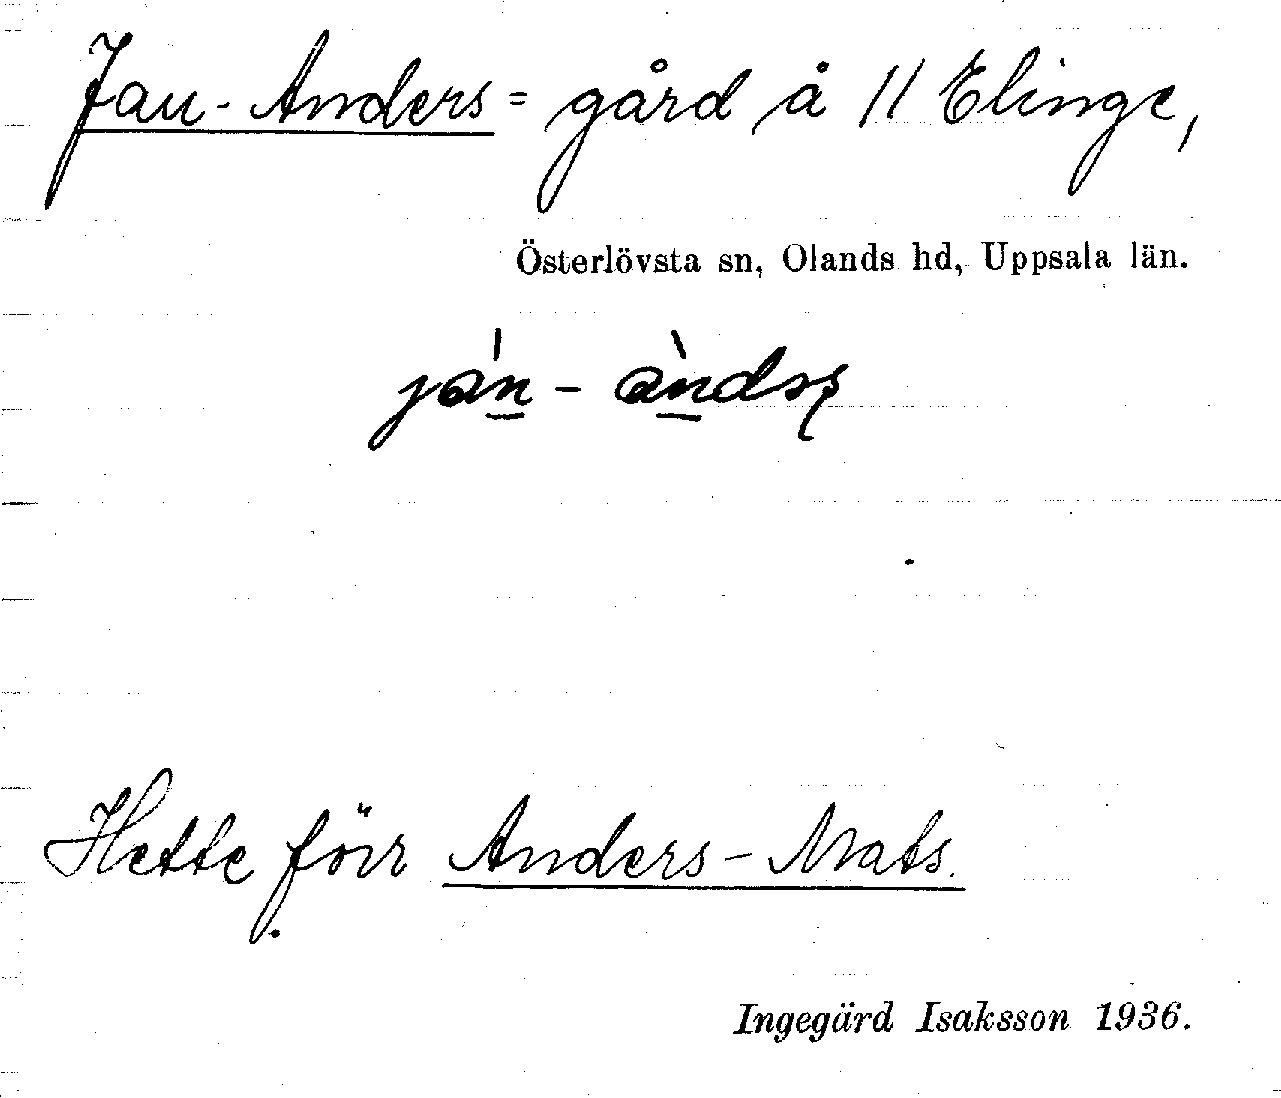 Jan-Anders = gård å 11 Elinge,
Österlövsta sn, Olands hd, Uppsala län.
ján - àndsʂ
Hette förr Anders-Mats.
Ingegärd Isaksson 1936.